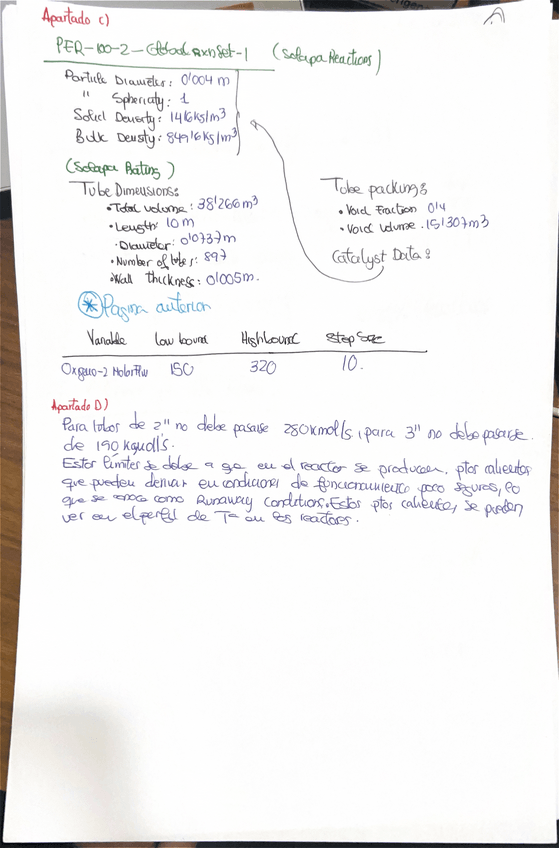 Apartado c)
PFR-100-2-Global Rxn Set-1 (Solapa Reactions)
Particle Diameter: 0'004 m
" Sphericity: 1
Solid Density: 1416 Kg/m³
Bulk Density: 849'6 Kg/m³
(Solapa Rating)
Tube Dimensions:
• Total volume: 38'266 m³
• Length: 10 m
• Diameter: 0'0737 m
• Number of tubes: 897
• Wall thickness: 0'005 m.
Tube packing:
• Void Fraction 0'4
• Void Volume. 15'307 m³
Catalyst Data:
* Pagina anterior
Variable Low bound High bound Step Size
Oxigeno-2 Molar Flow 150 320 10.
Apartado D)
Para tubos de 2" no debe pasarse 280 kmol/s, para 3" no debe pasarse
de 190 kgmol/s.
Estos límites se debe a qe en el reactor se producen, ptos calientes
que pueden derivar en condiciones de funcionamiento poco seguros, lo
que se conoce como Runaway Conditions. Estos ptos calientes, se pueden
ver en el perfil de Tª en los reactores.